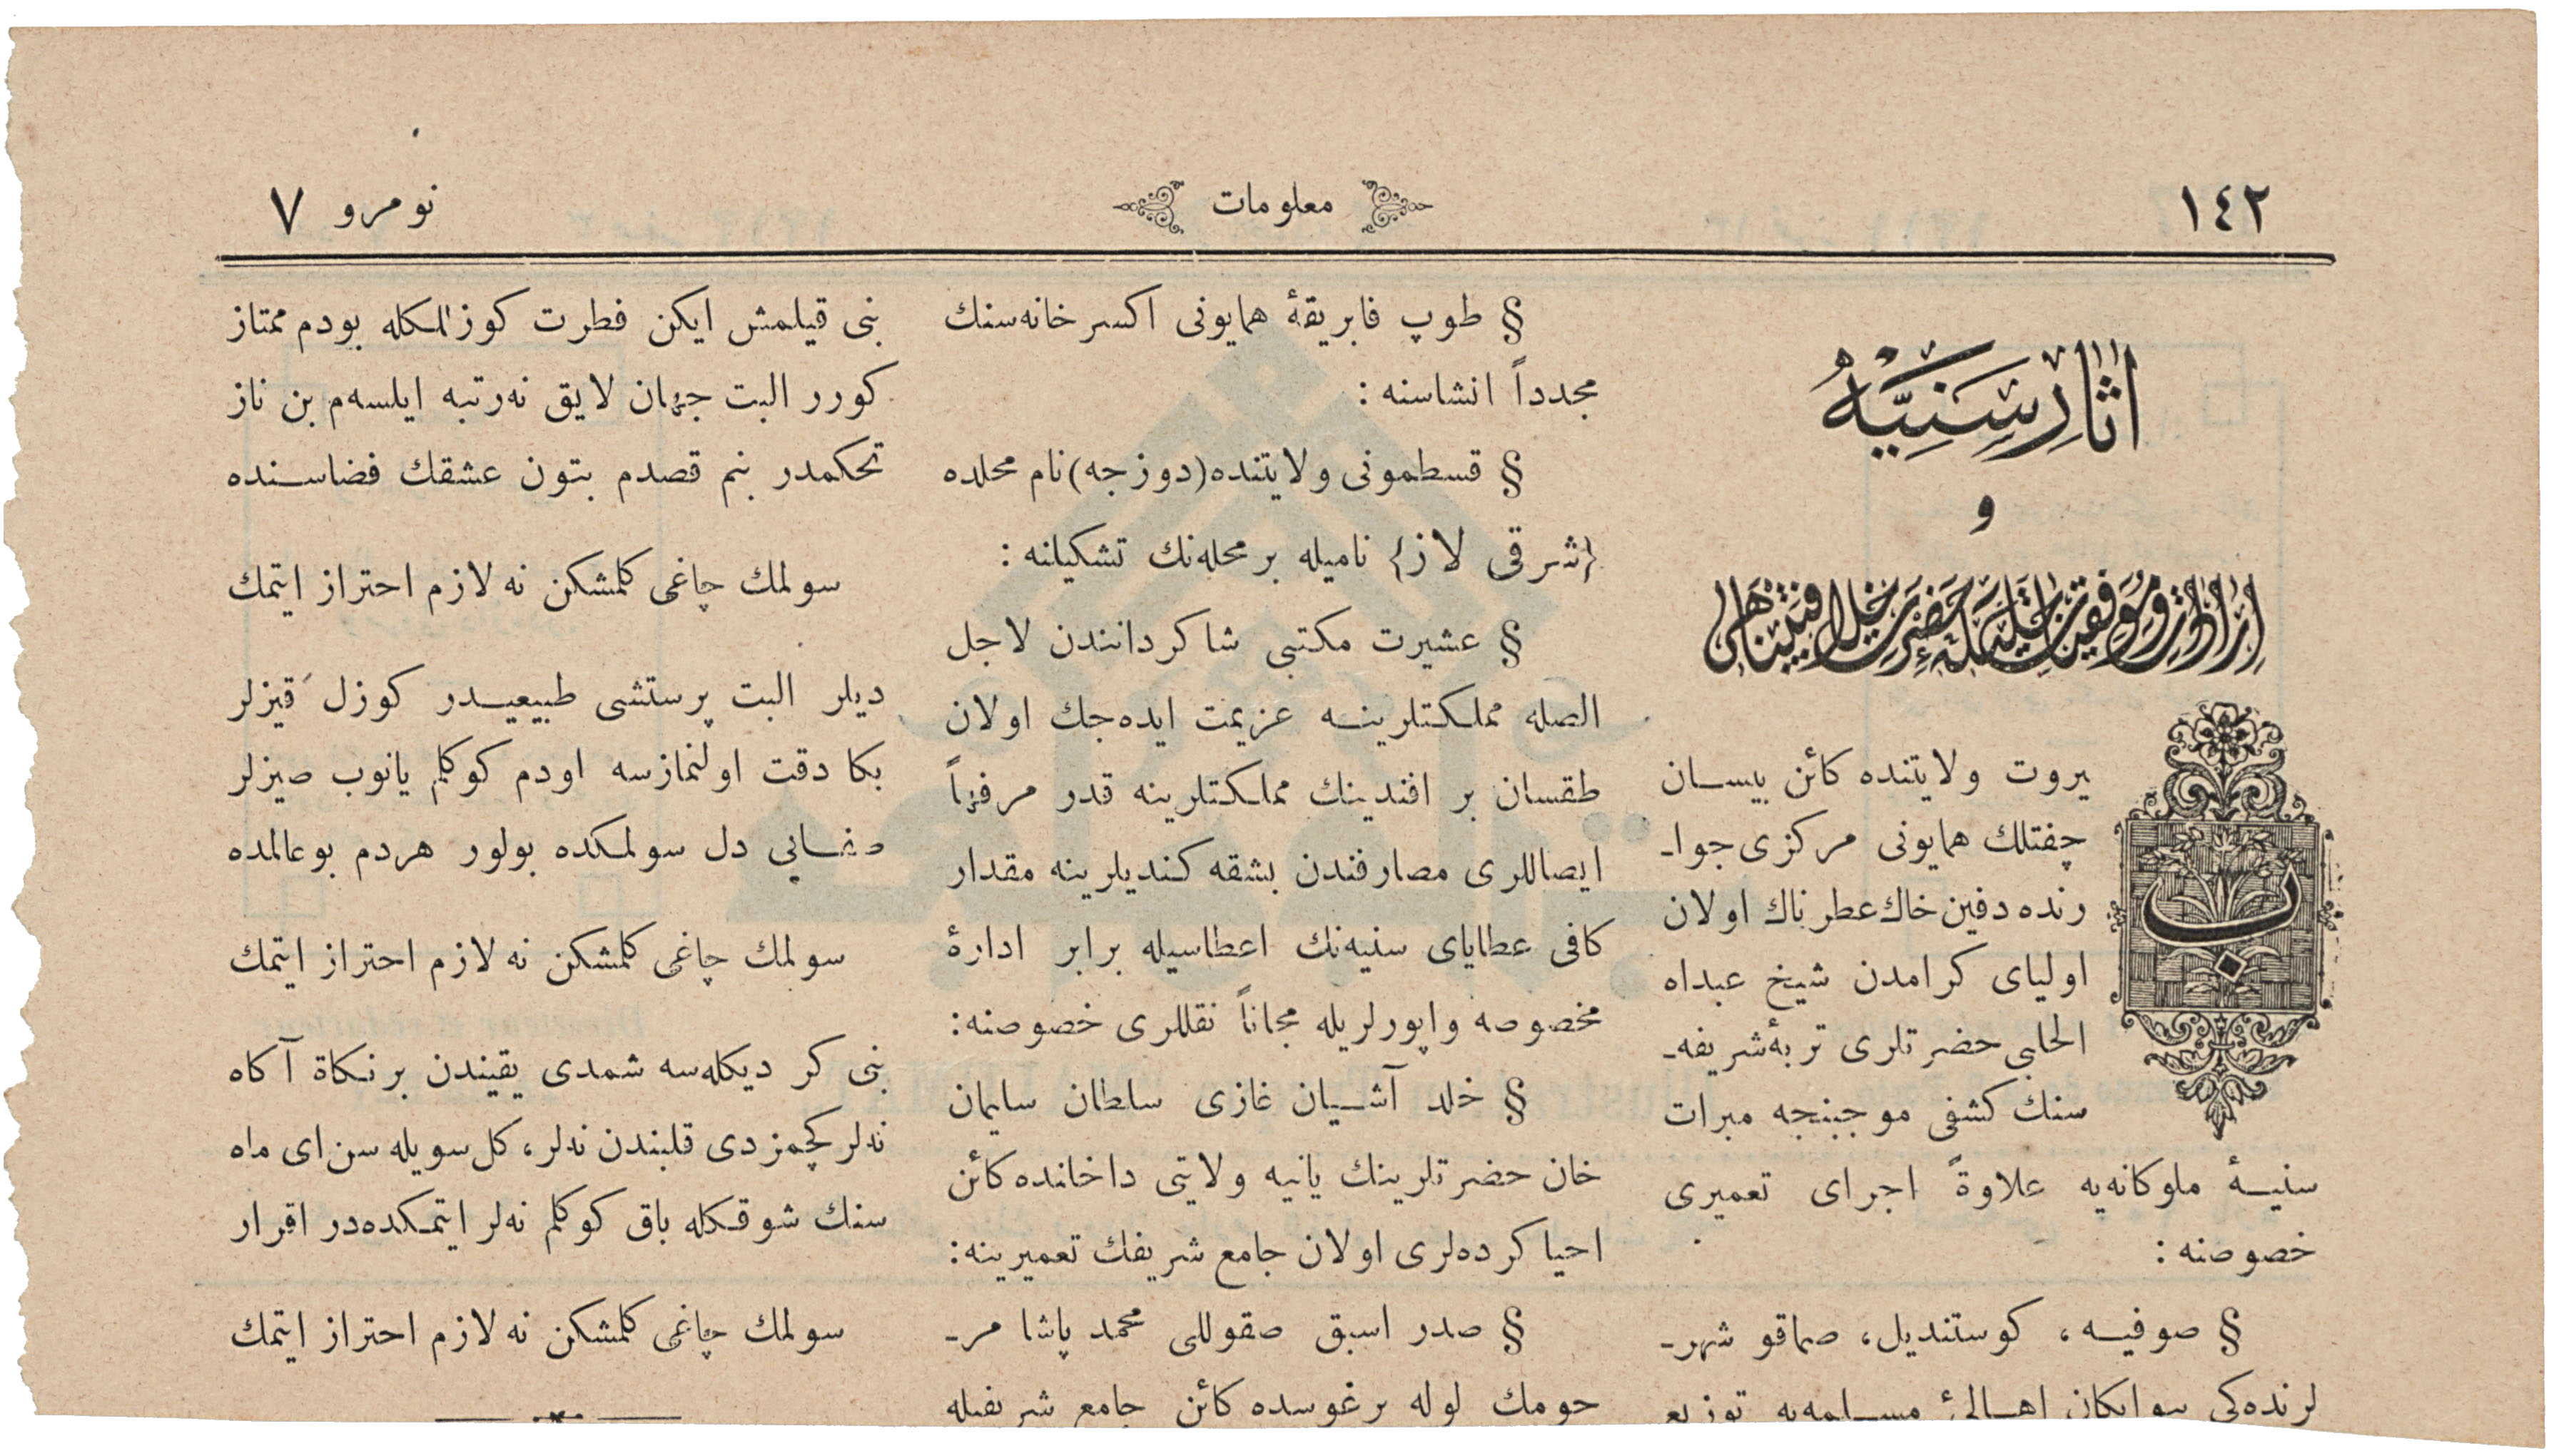 ١٤٢
معلومات
نومرو ٧
اثار سنيه
و
بيروت ولايتنده كائن بيسان
چفتلك همايونى مركزى جوا-
رنده دفين خاك عطرناك اولان
اولياى كرامدن شيخ عبداه
الحلبى حضرتلرى تربۀ شريفه-
سنك كشفى موجبنجه مبرات
سنيۀ ملوكانه‌يه علاوةً اجراى تعميرى
خصوصنه :
§ صوفيه ، كوستنديل، صماقو شهر-
لرنده‌كى
§ طوپ فابريقۀ همايونى اكسرخانه‌سنك
مجدداً انشاسنه :
§ قسطمونى ولايتنده (دوزجه) نام محلده
{شرقى لاز} ناميله بر محله‌نك تشكيلنه :
§ عشيرت مكتبى شاكرداننـدن لاجل
الصله مملكتلرينـه عزيمت ايده‌جك اولان
طقسان بر افندينك مملكتلرينه قدر مرفهاً
ايصاللرى مصارفندن بشقه كنديلرينه مقدار
كافى عطاياى سنيه‌نك اعطاسيله برابر ادارۀ
مخصوصه واپورلريله مجاناً نقللرى خصوصنه:
§ خلد آشـيان غازى سلطان سليمان
خان حضرتلرينك يانيه ولايتى داخلنده كائن
احيا كرده‌لرى اولان جامع شريفك تعميرينه:
§ صدر اسبق صقوللى محمد پاشا مر-
حومك لوله برغوسده كائن جامع شريفيله
بنى قيلمش ايكن فطرت كوزلكله بودم ممتاز
كورر البت جهان لايق نه‌رتبه ايلسه‌م بن ناز
تحكمدر بنم قصدم بتون عشقك فضاسـنده
سولمك چاغى كلمشكن نه لازم احتراز ايتمك
ديلر البت پرستشى طبيعيـدر كوزل قيزلر
بكا دقت اولنمازسه اودم كوكلم يانوب صيزلر
صفـايى دل سولمكده بولور هردم بوعالمده
سولمك چاغى كلمشكن نه لازم احتراز ايتمك
بنى كر ديكله‌سه شمدى يقيندن برنكاة آكاه
نه‌لر كچمزدى قلبندن نه‌لر، كل سويله سن اى ماه
سنك شوقكله باق كوكلم نه‌لر ايتمكده‌در اقرار
سولمك چاغى كلمشكن نه لازم احتراز ايتمك